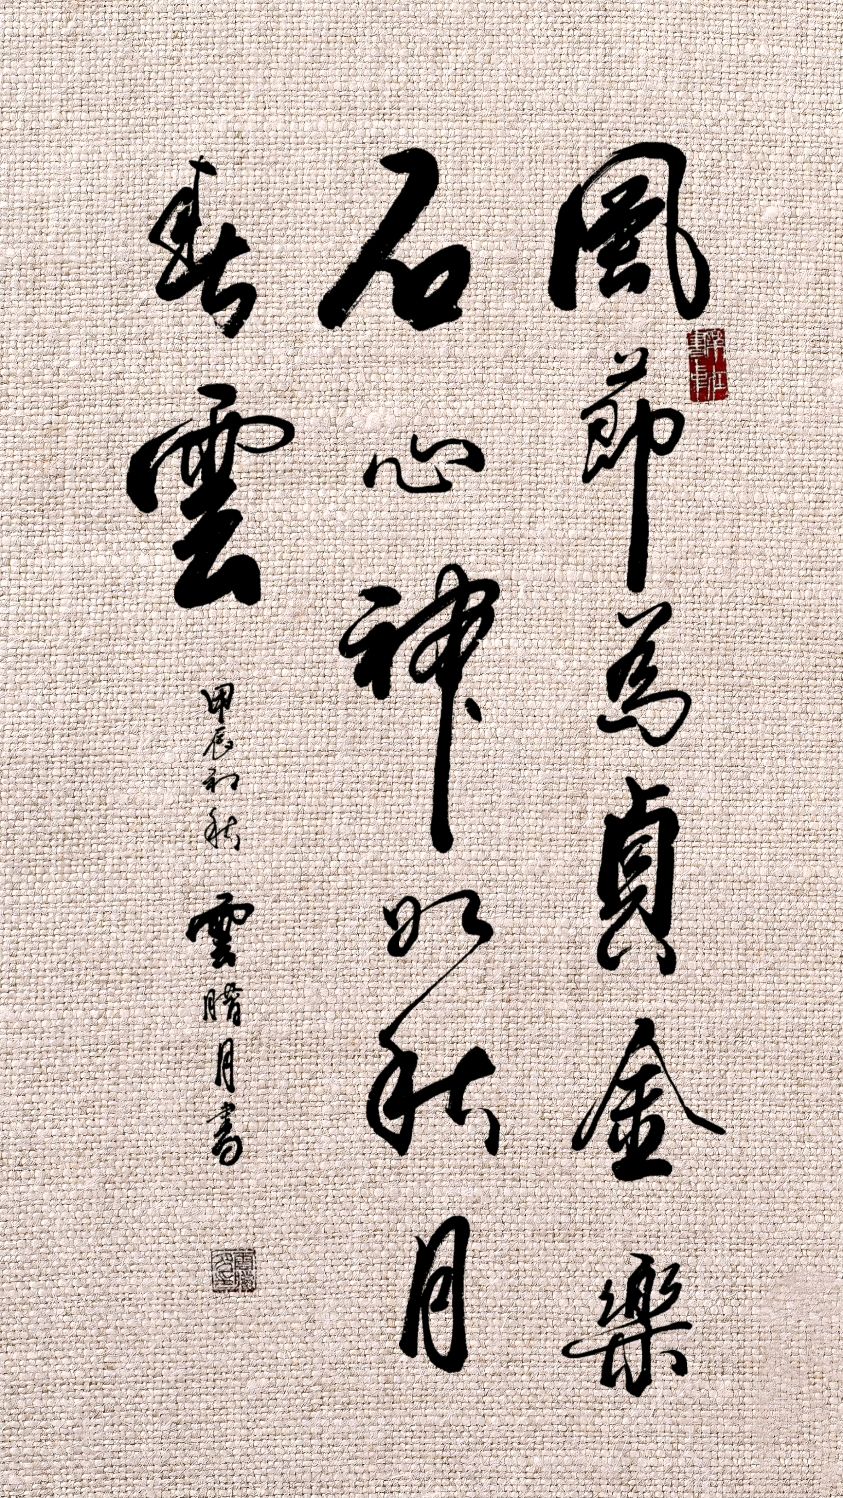 風節為貞金樂
石心神如秋月
春雲
甲辰初秋 雲月書